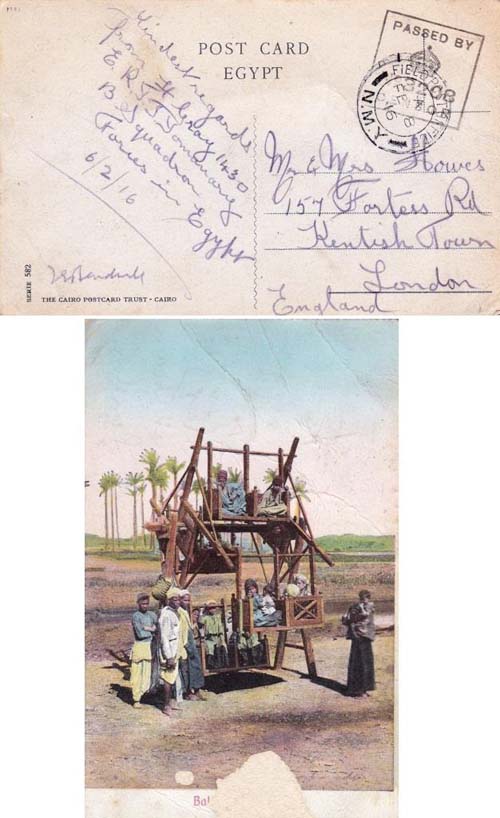 POST CARD
EGYPT
PASSED BY
FIELD POST OFFICE
Kindest regards
from H Gray 1430
E.R.
B Squadron
Forces in Egypt
6/2/16
Mr & Mrs Howes
157 Fortess Rd
Kentish Town
London
England
SERIE 582
THE CAIRO POSTCARD TRUST · CAIRO
Bal